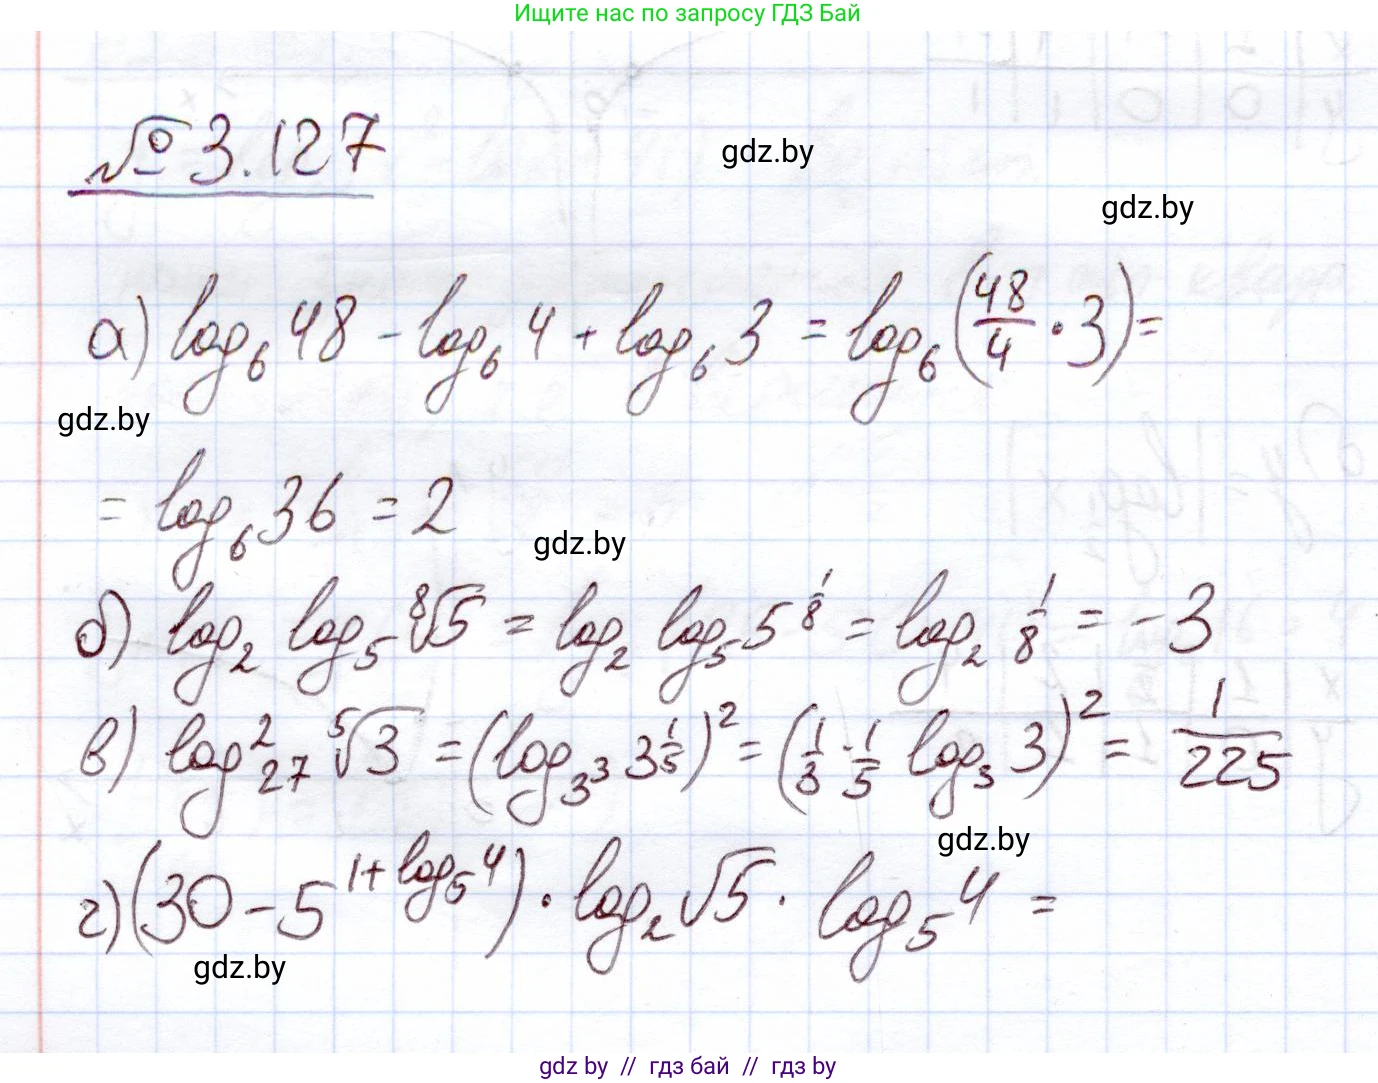 Ищите нас по запросу ГДЗ Бай
№ 3.127
gdz.by
gdz.by
а) log₆ 48 - log₆ 4 + log₆ 3 = log₆ (48/4 · 3) =
gdz.by
= log₆ 36 = 2
gdz.by
б) log₂ log₅ ⁸√5 = log₂ log₅ 5^(1/8) = log₂ 1/8 = -3
в) log²₂₇ ⁵√3 = (log_(3³) 3^(1/5))² = (1/3 · 1/5 log₃ 3)² = 1/225
gdz.by
г) (30 - 5^(1+log₅ 4)) · log₂ √5 · log₅ 4 =
gdz.by
gdz by // гдз бай // гдз by